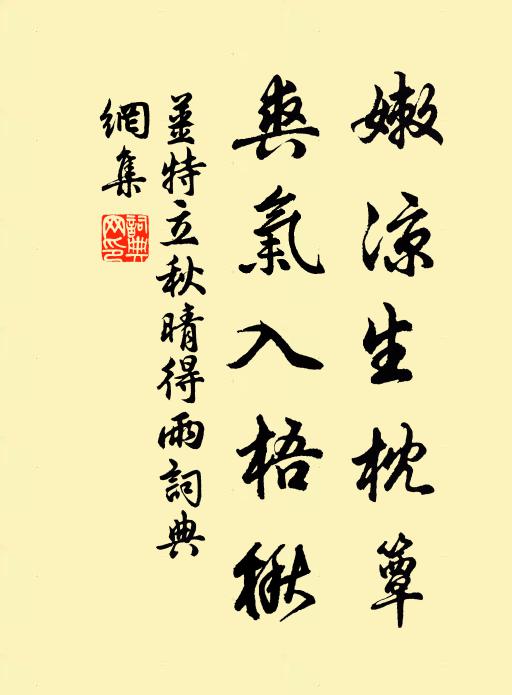 嫩凉生枕簟
爽氣入梧楸
姜特立秋晴得雨詞典
網集
詞典網印